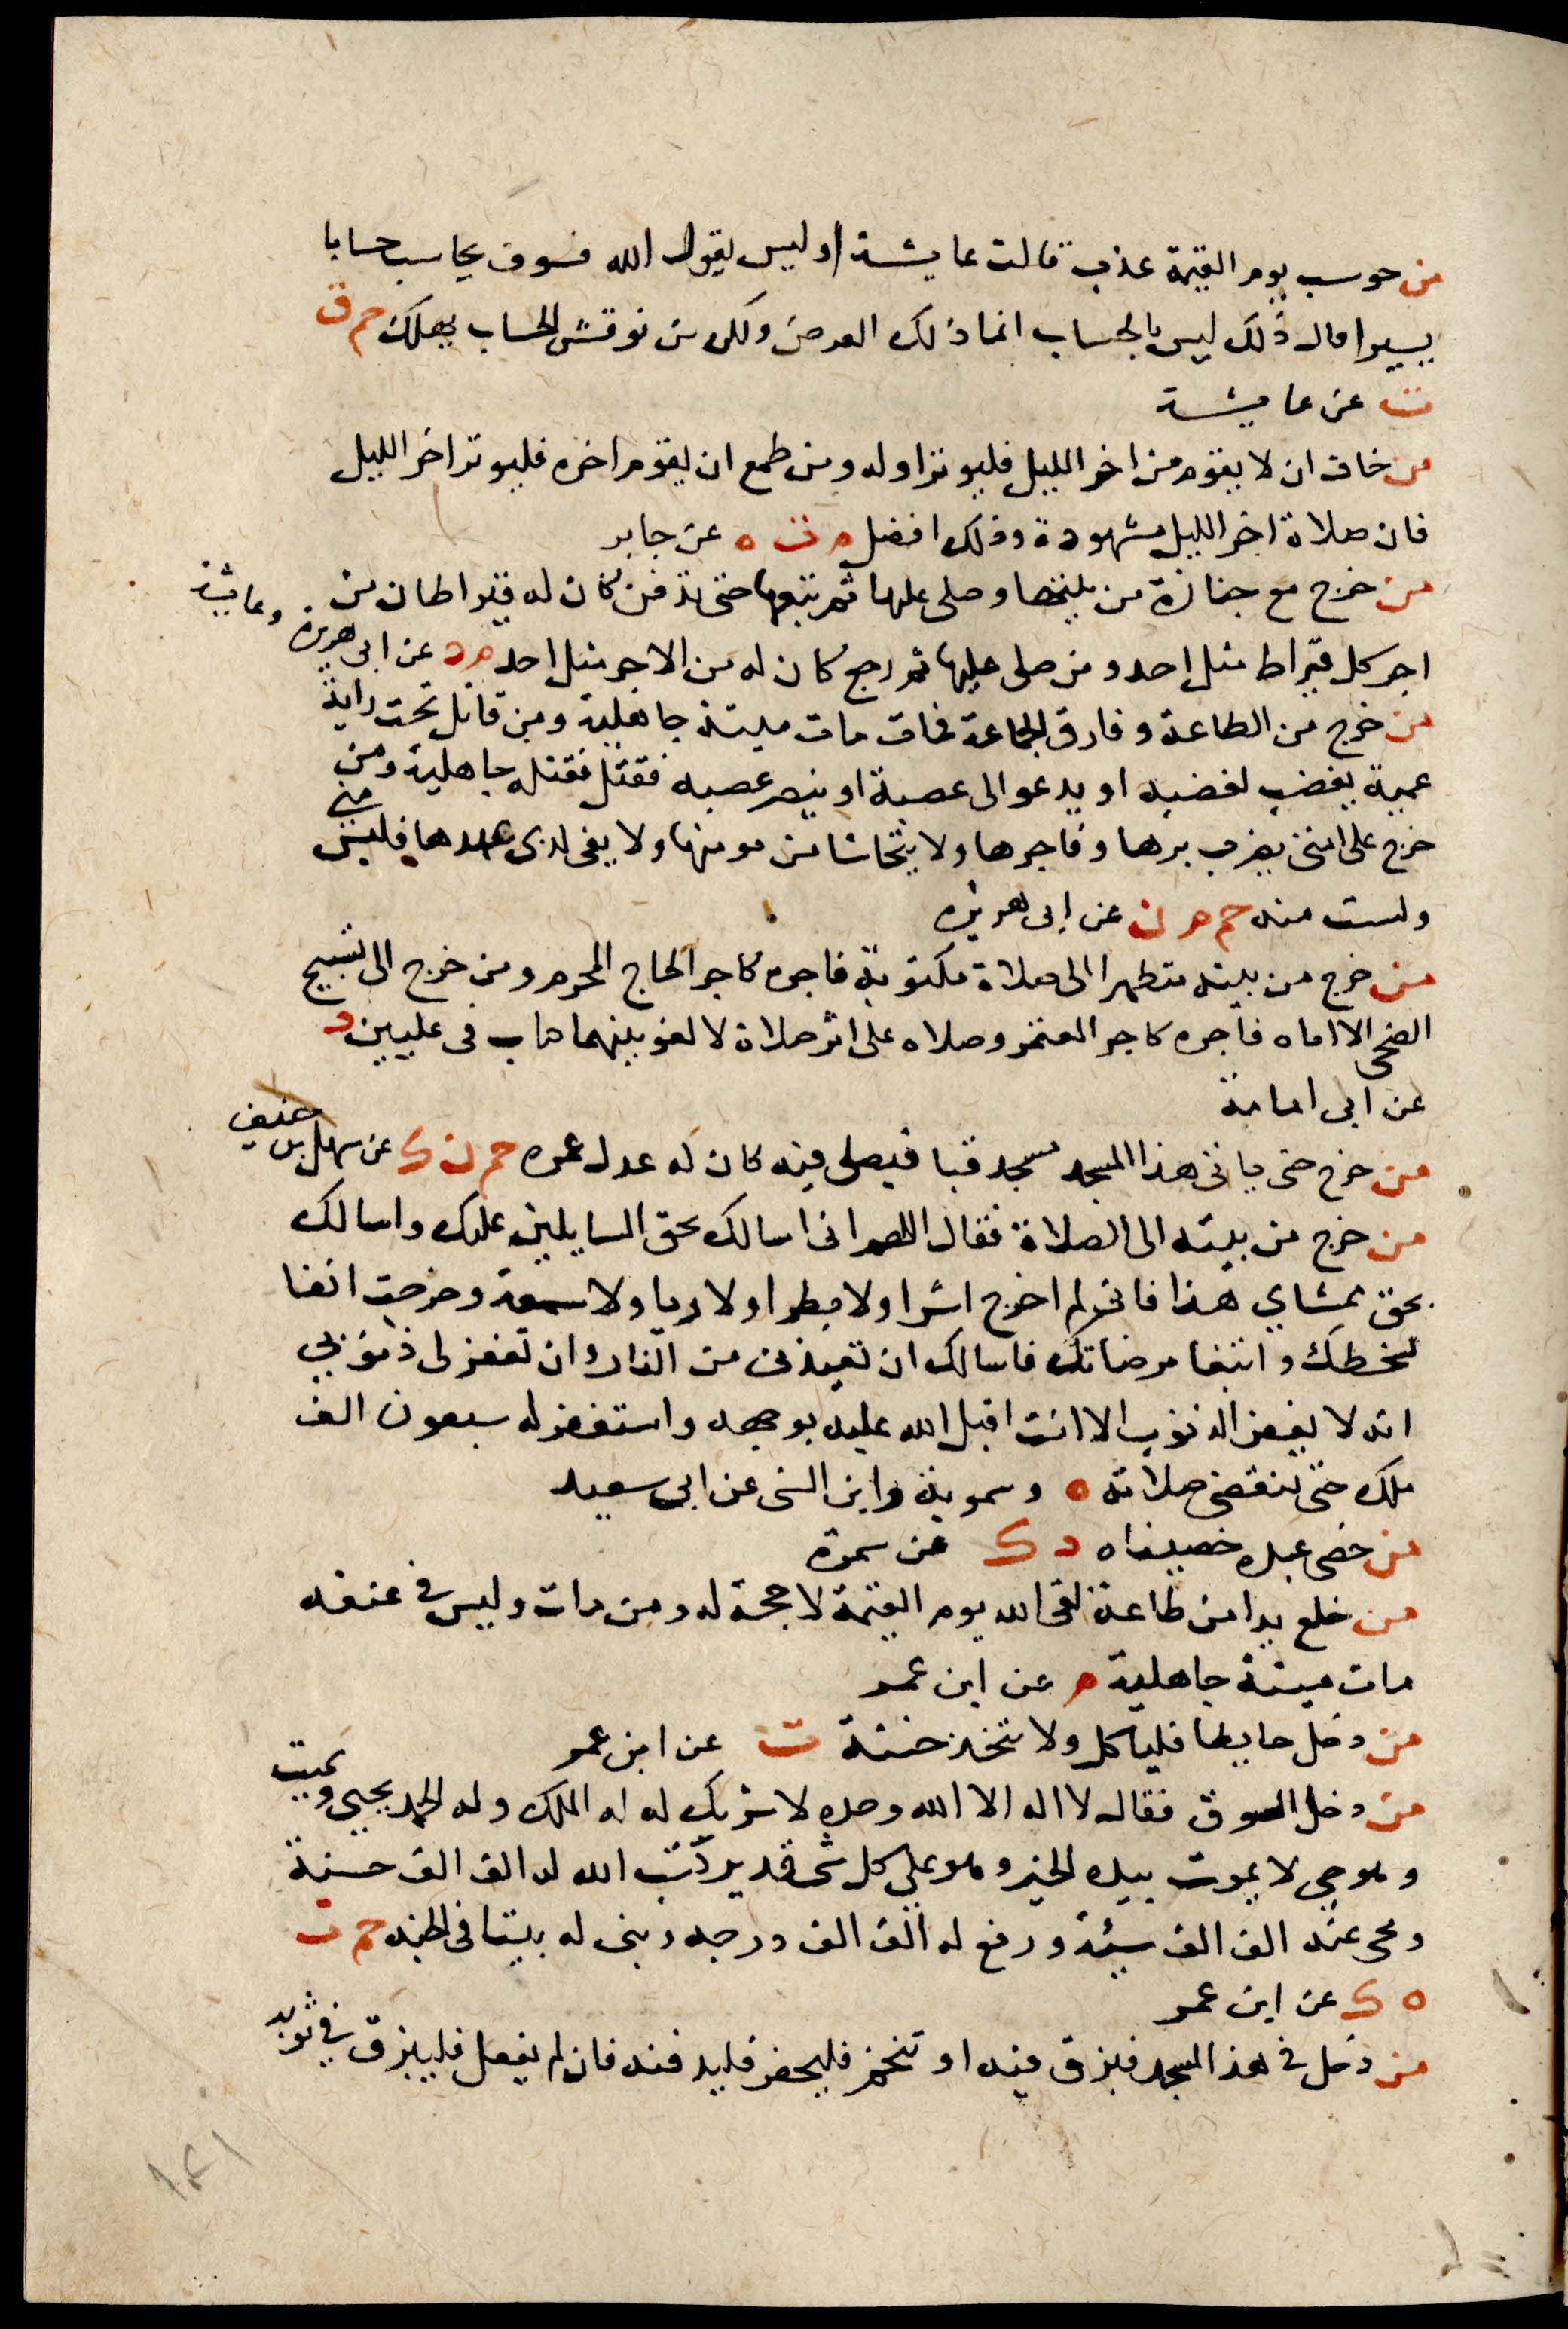 من حوسب يوم القيمة عذب قالت عايشة اوليس يقول الله فسوف يحاسب حسابا
يسيرا قال ذلك ليس بالحساب انما ذلك العرض ولكن من نوقش الحساب يهلك حم ق
ت عن عايشة
من خاف ان لا يقوم من اخر الليل فليوتر اوله ومن طمع ان يقوم اخره فليوتر اخر الليل
فان صلاة اخر الليل مشهودة وذلك افضل م ت ه عن جابر
من خرج مع جنازة من بيتها وصلى عليها ثم تبعها حتى تدفن كان له قيراطان من
اجر كل قيراط مثل احد ومن صلى عليها ثم رجع كان له من الاجر مثل احد م د عن ابى هريرة وعايشة
من خرج من الطاعة وفارق الجماعة فمات مات ميتة جاهلية ومن قاتل تحت راية
عمية يغضب لغضبه او يدعو الى عصبة او ينصر عصبه فقتل فقتله جاهلية ومن
خرج على امتى يضرب برها وفاجرها ولا يتحاشا من مومنها ولا يفى لذى عهدها فليس منى
ولست منه حم م ن عن ابى هريرة
من خرج من بيته متطهرا الى صلاة مكتوبة فاجره كاجر الحاج المحرم ومن خرج الى تسبيح
الضحى الا اماه فاجره كاجر المعتمر وصلاه على اثر صلاة لا لغو بينهما كتاب فى عليين د
عن ابى امامة
من خرج حتى ياتى هذا المسجد مسجد قبا فيصلى فيه كان له عدل عمره حم ن ك عن سهل بن حنيف
من خرج من بيته الى الصلاة فقال اللهم انى اسالك بحق السايلين عليك واسالك
بحق ممشاي هذا فانى لم اخرج اشرا ولا بطرا ولا ريا ولا سمعة وخرجت اتقا
سخطك وابتغا مرضاتك فاسالك ان تعيذنى من النار وان تغفر لى ذنوبي
انه لا يغفر الذنوب الا انت اقبل الله عليه بوجهه واستغفر له سبعون الف
ملك حتى تنقضى صلاته ه وسموية وابن السنى عن ابى سعيد
من خصى عبده خصيناه د ك عن سمرة
من خلع يدا من طاعة لقى الله يوم القيمة لا حجة له ومن مات وليس فى عنقه
مات ميتة جاهلية م عن ابن عمر
من دخل حايطا فلياكل ولا يتخذ خبنة ت عن ابن عمر
من دخل السوق فقال لا اله الا الله وحده لا شريك له له الملك وله الحمد يحيى ويميت
وهو حي لا يموت بيده الخير وهو على كل شى قدير كتب الله له الف الف حسنة
ومحى عنه الف الف سيئة ورفع له الف الف درجه وبنى له بيتا فى الجنه حم ت
ه ك عن ابن عمر
من دخل فى هذا المسجد فبزق فيه او تنخم فليحفر فليدفنه فان لم يفعل فليبزق فى ثوبه
١٢١